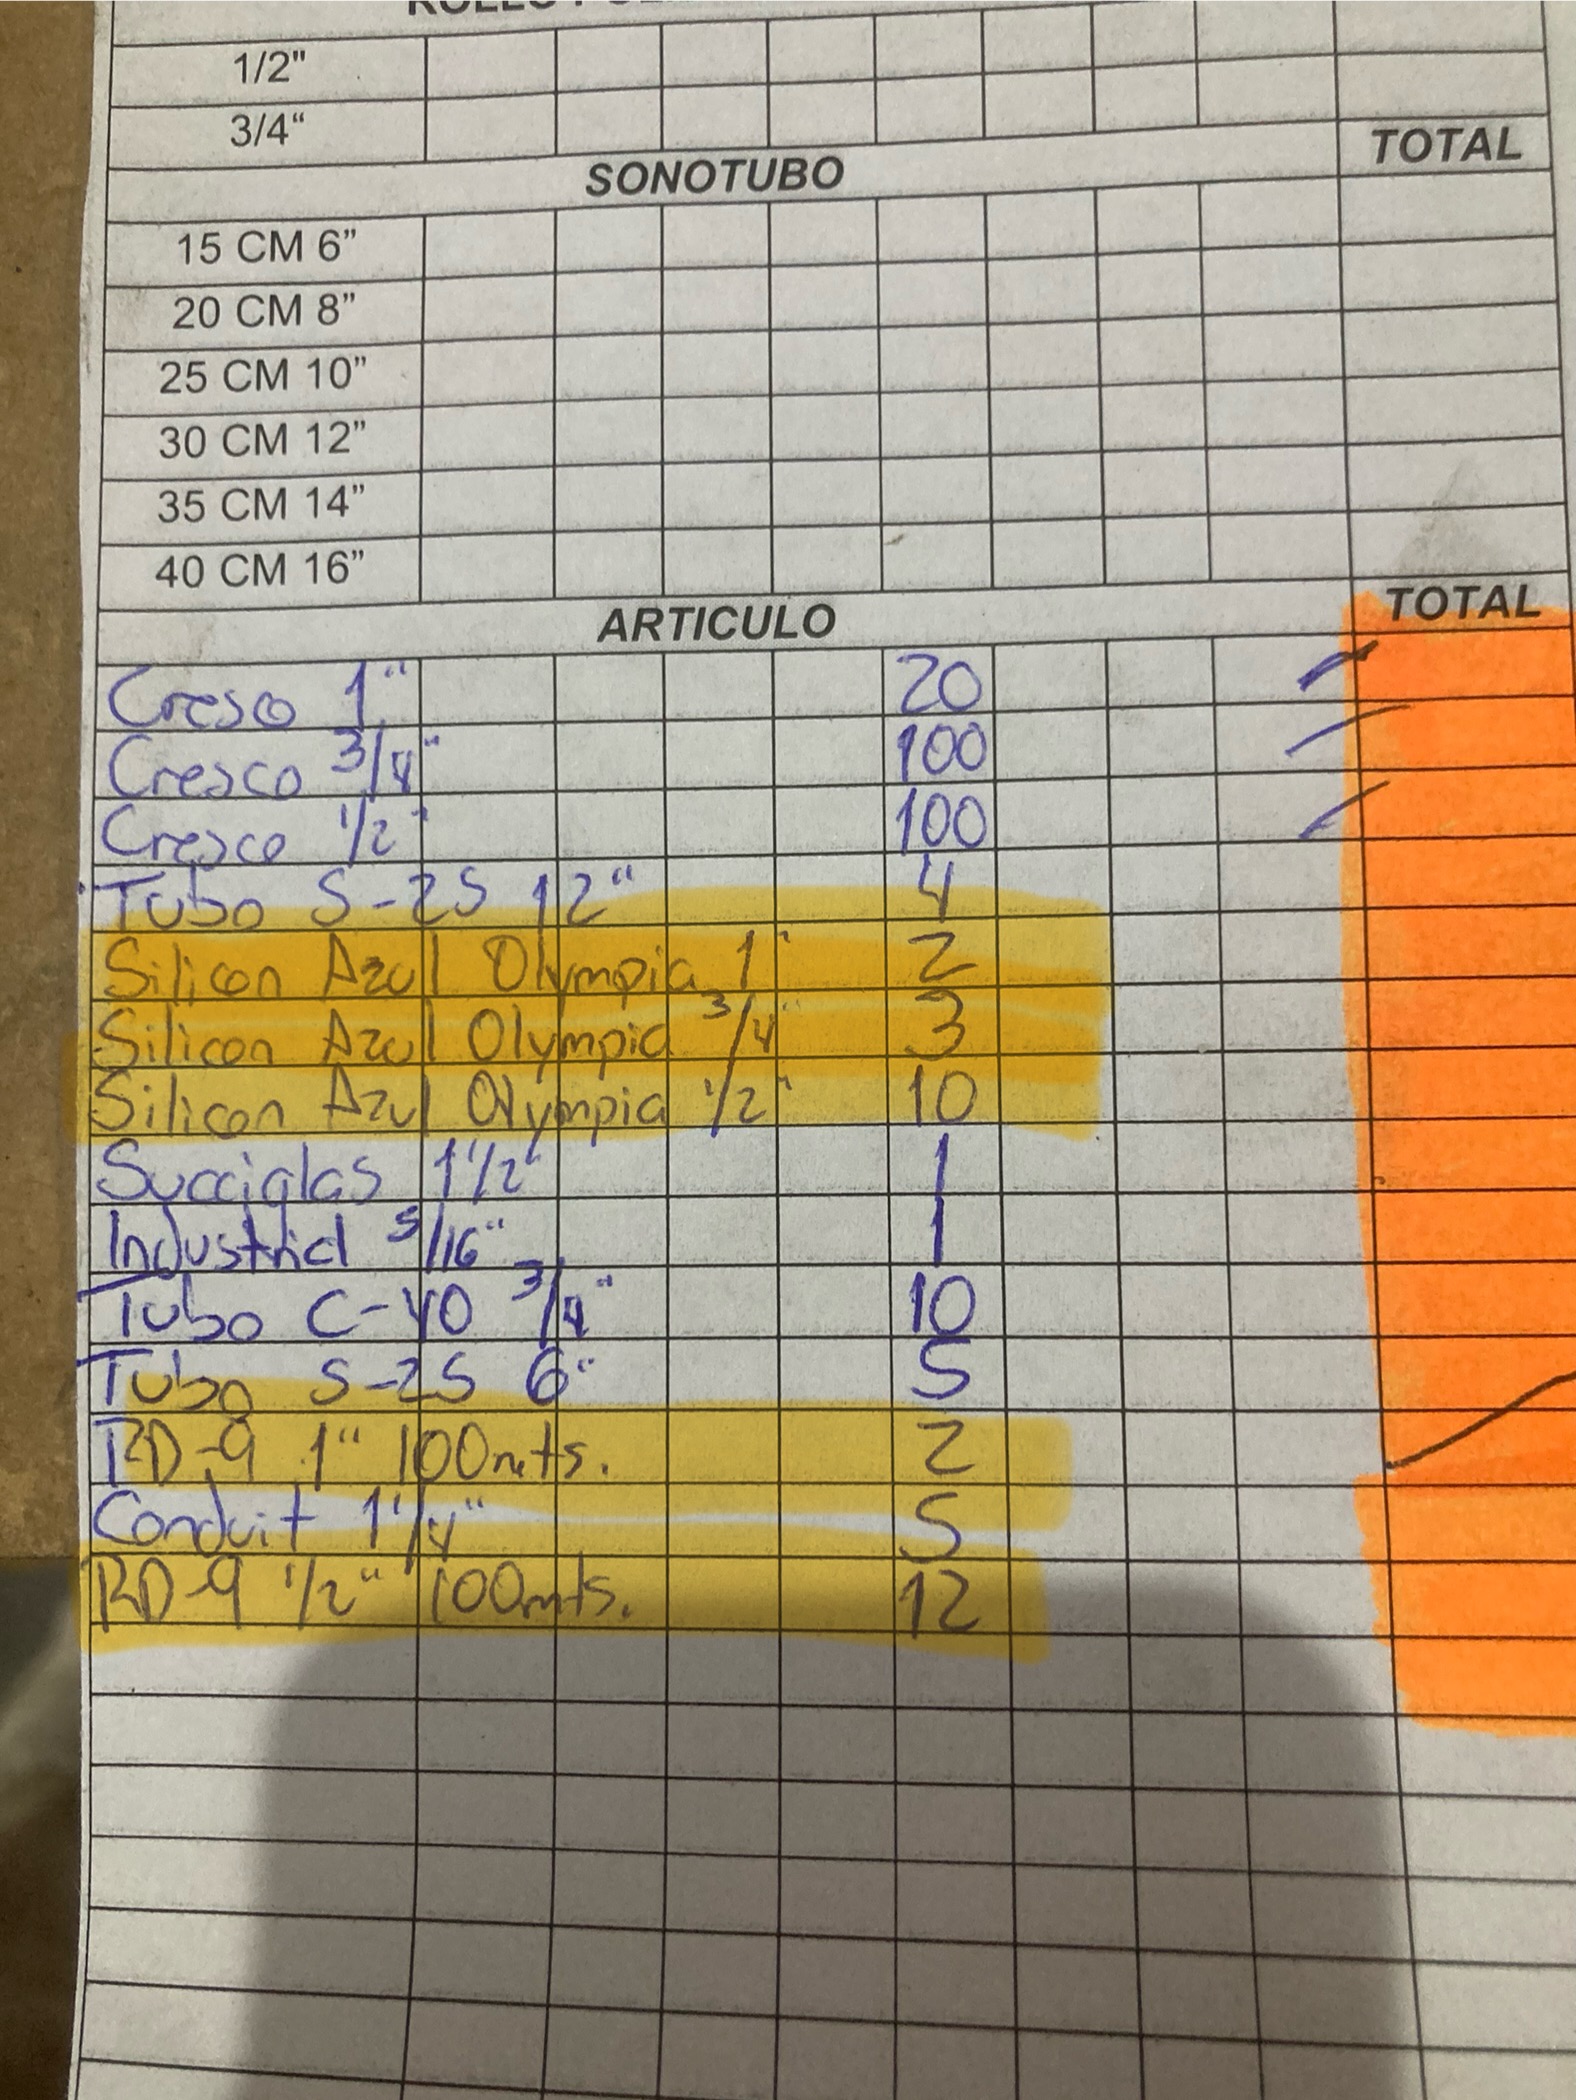 1/2"
3/4“
SONOTUBO TOTAL
15 CM 6”
20 CM 8”
25 CM 10”
30 CM 12”
35 CM 14”
40 CM 16”
ARTICULO TOTAL
Cresco 1" 20
Cresco 3/4" 100
Cresco 1/2" 100
Tubo S-25 12" 4
Silicon Azul Olympia 1" 2
Silicon Azul Olympia 3/4" 3
Silicon Azul Olympia 1/2" 10
Succiglas 1 1/2" 1
Industrial 5/16" 1
Tubo C-40 3/4" 10
Tubo S-25 6" 5
RD-9 1" 100mts. 2
Conduit 1 1/4" 5
RD-9 1/2" 100mts. 12